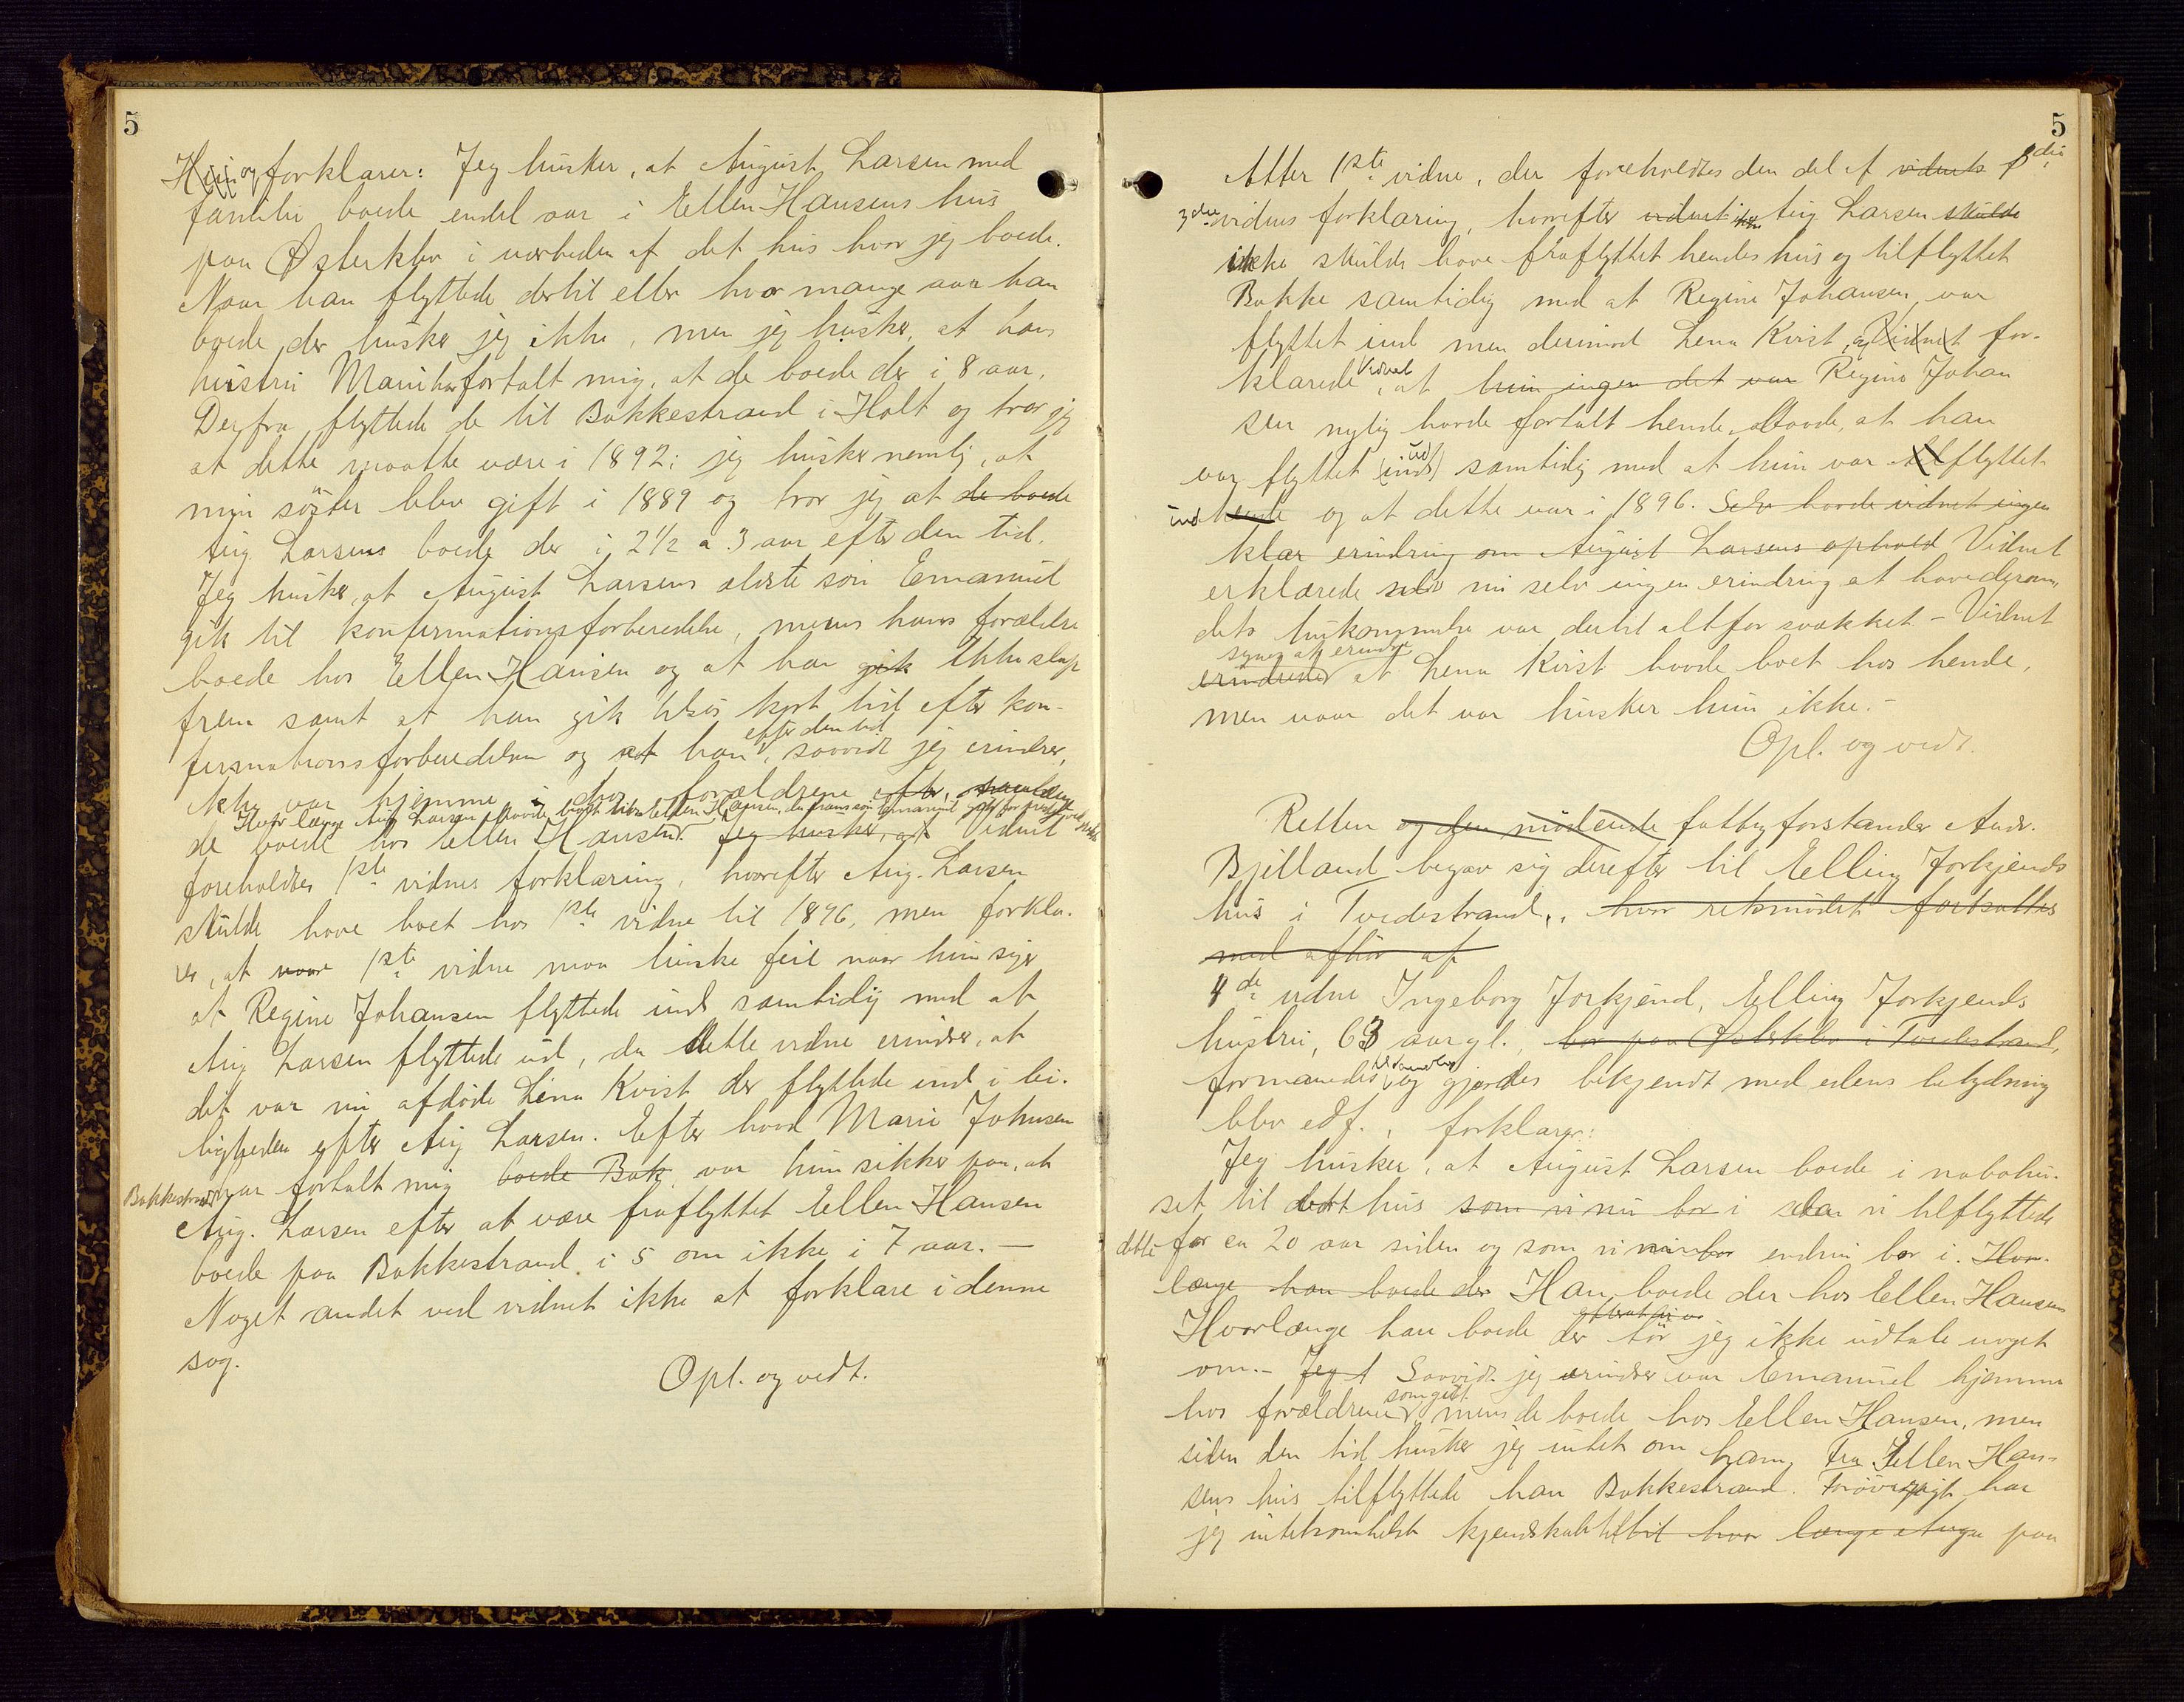 5
Hun og forklarer: Jeg husker, at August Larsen med
familie boede endel aar i Ellen Hansens hus
paa Østerklev i nærheden af det hus hvor jeg boede.
Naar han flyttede dertil eller hvor mange aar han
boede der husker jeg ikke, men jeg husker, at hans
hustru Marie har fortalt mig, at de boede der i 8 aar.
Derfra flyttede de til Bakkestrand i Holt og tror jeg
at dette maatte være i 1892; jeg husker nemlig, at
min söster blev gift i 1889 og tror jeg at de boede
Aug. Larsens boede der i 2½ a 3 aar efter den tid.
Jeg husker, at August Larsens ældste søn Emanuel
gik til konfirmationsforberedelse, mens hans forældre
boede hos Ellen Hansen og at han gik ikke slap
frem samt at han gik tilsjøs kort tid efter kon-
firmationsforberedelsen og at han, efter den tid saavidt jeg erindrer,
ikke var hjemme i hos forældrene efter, saalænge
Hvor længe Aug. Larsen havde boet hos Ellen Hansen, da hans søn Emanuel
de boede hos Ellen Hansen. Jeg husker, at Vidnet
foreholdtes 1ste vidnes forklaring, hvorefter Aug. Larsen
skulde have boet hos 1ste vidne til 1896, men forkla-
rer, at naar 1ste vidne maa huske feil naar hun siger
at Regine Johansen flyttede ind samtidig med at
Aug Larsen flyttede ud, da dette vidne erindrer, at
det var nu afdøde Lena Kvist der flyttede ind i lei-
ligheden efter Aug Larsen. Efter hvad Marie Johnsen
Bakkestrand har fortalt mig boede Bak. var hun sikker paa, at
Aug. Larsen efter at være fraflyttet Ellen Hansen
boede paa Bakkestrand i 5 om ikke i 7 aar. –
Noget andet ved vidnet ikke at forklare i denne
sag.
Opl. og vedt.
5
Atter 1ste vidne, der foreholdtes den del af vidnets 3die
3die vidnes forklaring, hvorefter Aug Larsen skulde
ikke skulde have fraflyttet hendes hus og tilflyttet
Bakke samtidig med at Regine Johansen var
flyttet ind men derimod Lena Kvist, og Vidnet for-
klarede Vidnet, at hun ingen det var Regine Johan
sen nylig havde fortalt hende, at han
var flyttet ind ud samtidig med at hun var tilflyttet
ind hende og at dette var i 1896. Selv havde vidnet ingen
klar erindring om August Larsens ophold Vidnet
erklærede selv nu selv ingen erindring at have derom,
dets hukommelse var dertil altfor svækket – Vidnet
synes at erindre
erindrede at Lena Kvist havde boet hos hende,
men naar det var husker hun ikke. –
Opl. og vedt.
Retten og den mödende fattigforstander Andr.
Bjelland begav sig derefter til Elling Jorkjends
hus i Tvedestrand, hvor retsmödet fortsattes
med afhör af
4de vidne Ingeborg Jorkjend, Elling Jorkjends
hustru, 63 aar gl., bor paa Østerklev i Tvedestrand,
formanedes og gjordes bekjendt med edens betydning
blev edf., forklarer:
Jeg husker, at August Larsen boede i nabohu-
set til det hus som vi nu bor i da vi tilflyttede
dette for ca 20 aar siden og som vi nu bor endnu bor i. Hvor
længe han boede der Han boede der hos Ellen Hansen
Hvorlænge han boede der tör jeg ikke udtale noget
om. – Jeg t Saavidt jeg erindrer var Emanuel hjemme
hos forældrene som gut mens de boede hos Ellen Hansen, men
siden den tid husker jeg intet om ham. Fra Ellen Han-
sens hus tilflyttede han Bakkestrand. Forövrigt har
jeg intetsomhelst kjendskab til hvor længe Augu paa